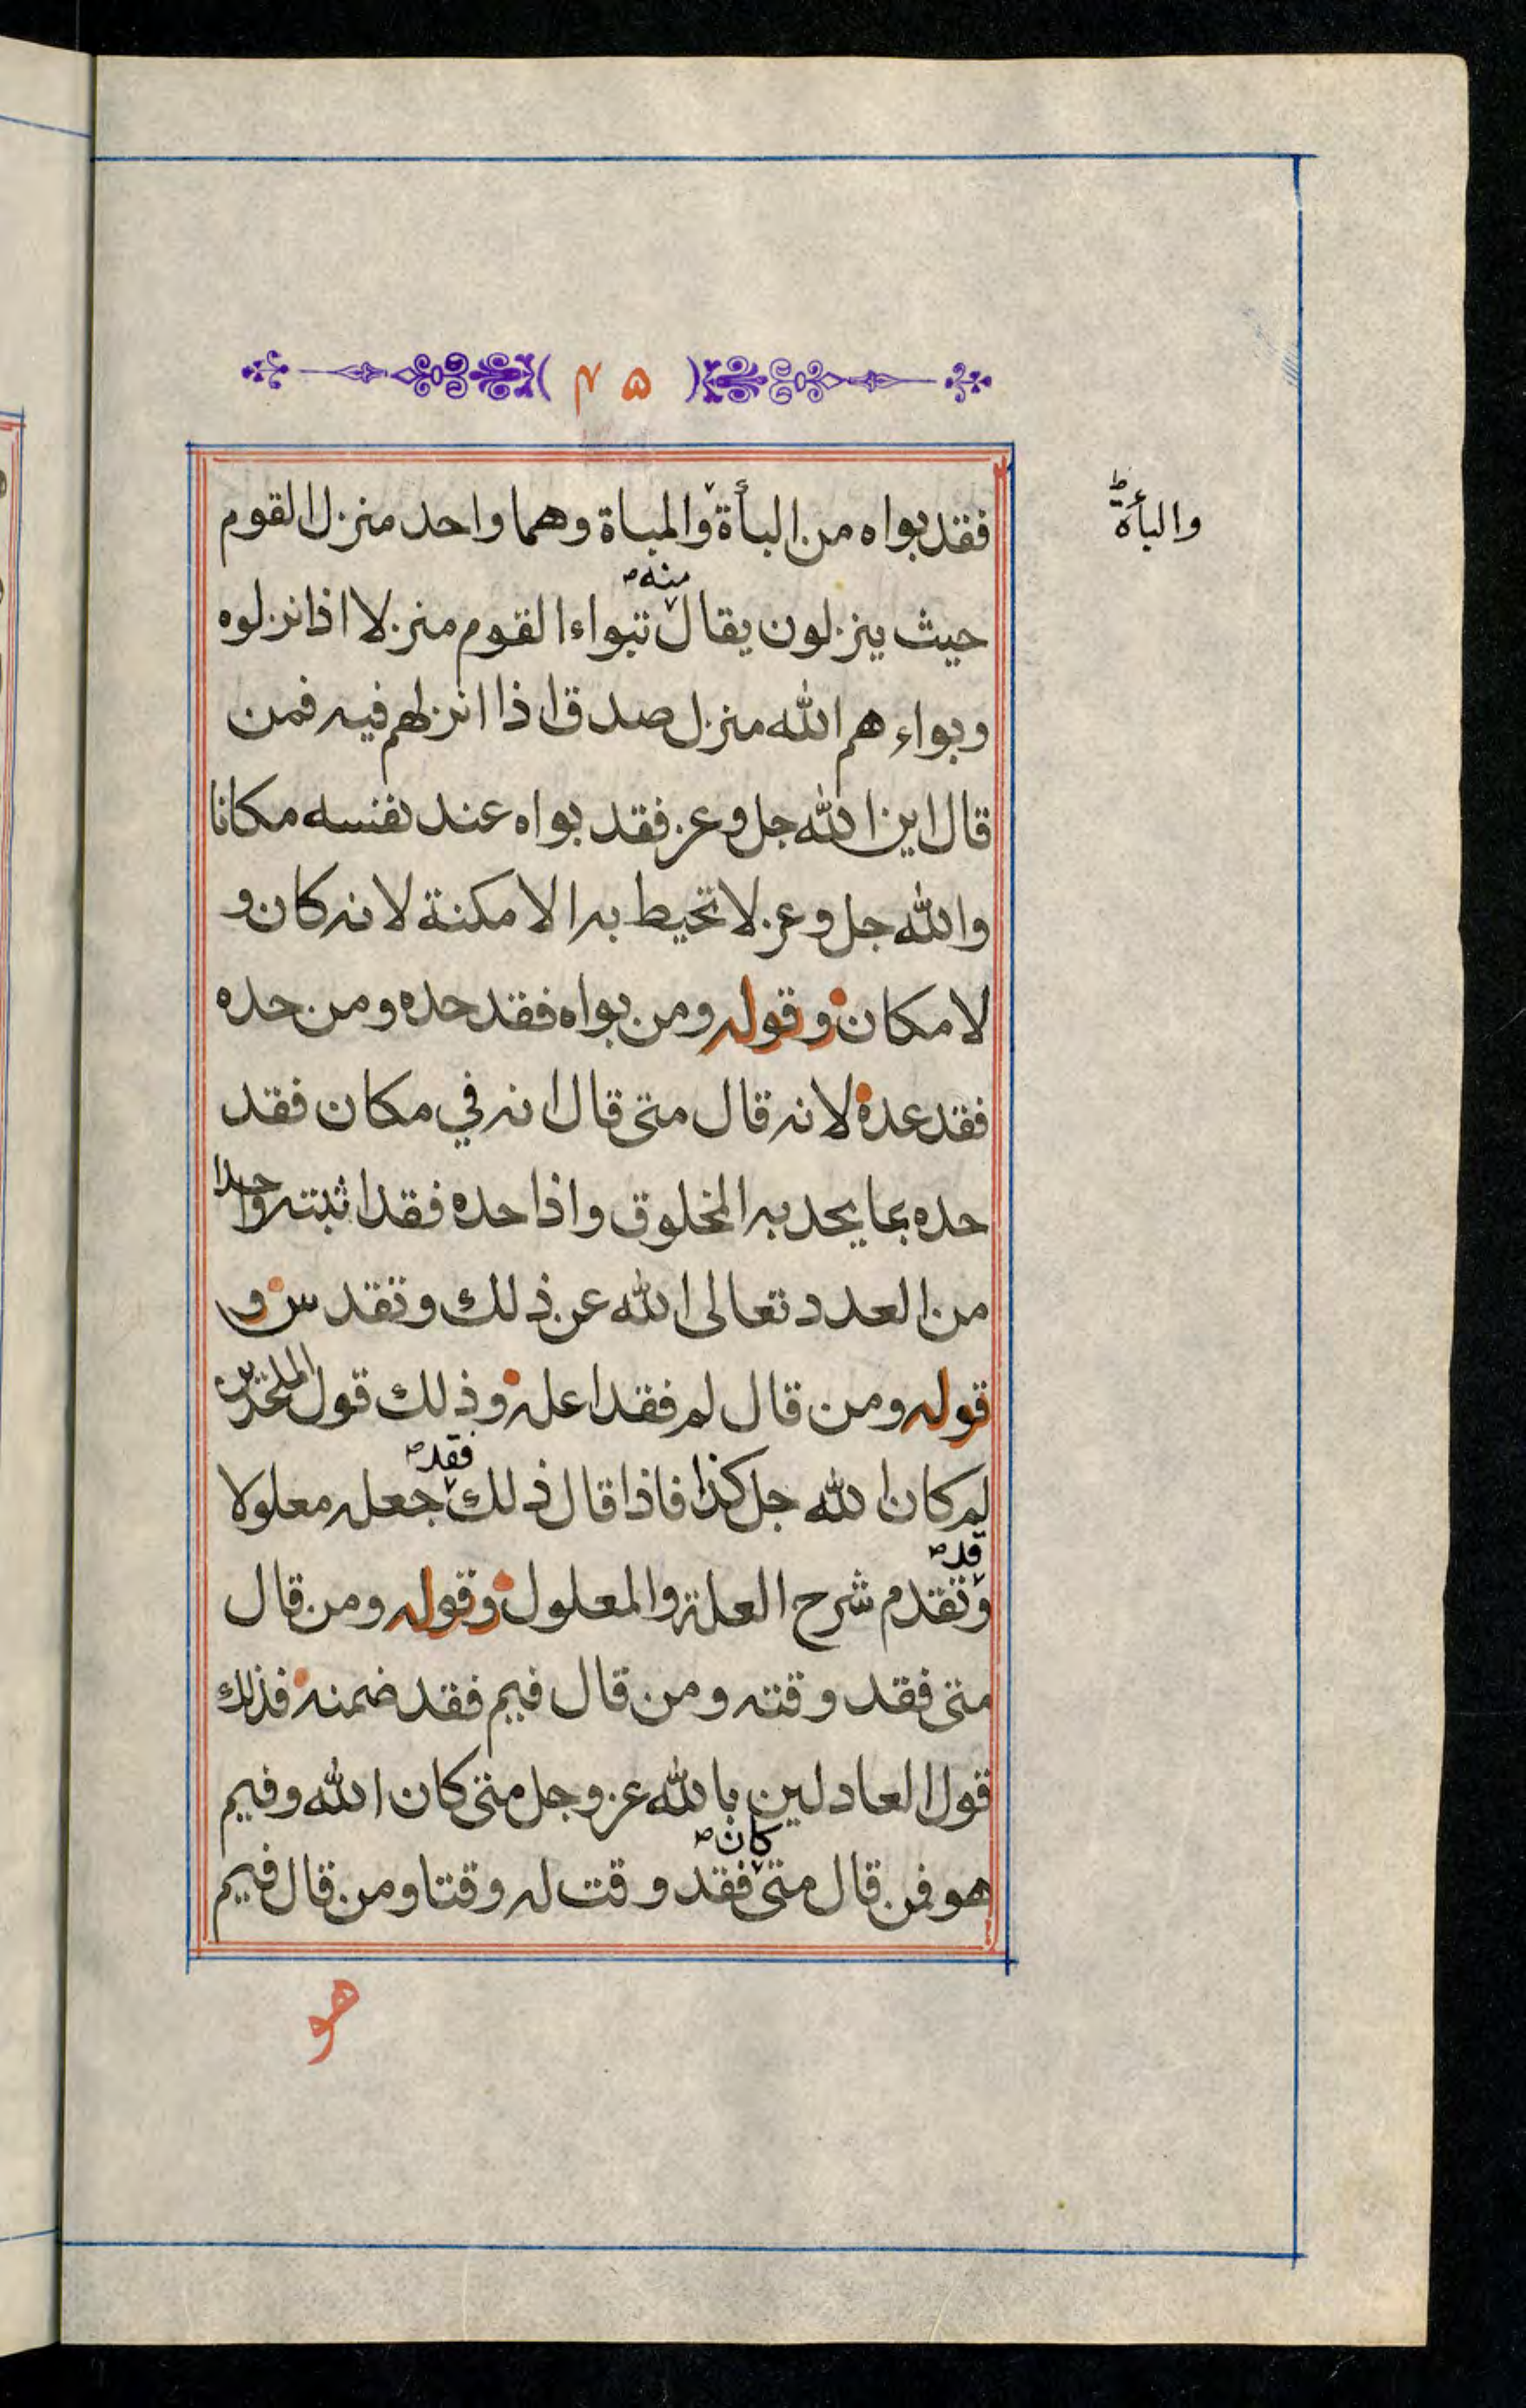 ( ٤٥ )
فقد بواه من البأة والمباة وهما واحد منزل القوم
والبأة ط
منه ص
حيث ينزلون يقال تبواء القوم منزلا اذا نزلوه
وبواء هم الله منزل صدق اذا انزلهم فيه فمن
قال اين الله جل وعز فقد بواه عند نفسه مكانا
والله جل وعز لا تحيط به الامكنة لانه كان و
لا مكان وقوله ومن بواه فقد حده ومن حده
فقد عده لانه قال متى قال انه في مكان فقد
حده بما يحد به المخلوق واذا حده فقد اثبته واحدا
من العدد تعالى الله عن ذلك وتقدس و
قوله ومن قال لم فقد اعله وذلك قول الملحدين
فقد ص
لم كان الله جل كذا فاذا قال ذلك جعله معلولا
قد ص
وتقدم شرح العلة والمعلول وقوله ومن قال
متى فقد وقته ومن قال فيم فقد ضمنه فذلك
قول العادلين بالله عز وجل متى كان الله وفيم
كان ص
هو فمن قال متى فقد وقت له وقتا ومن قال فيم
هو